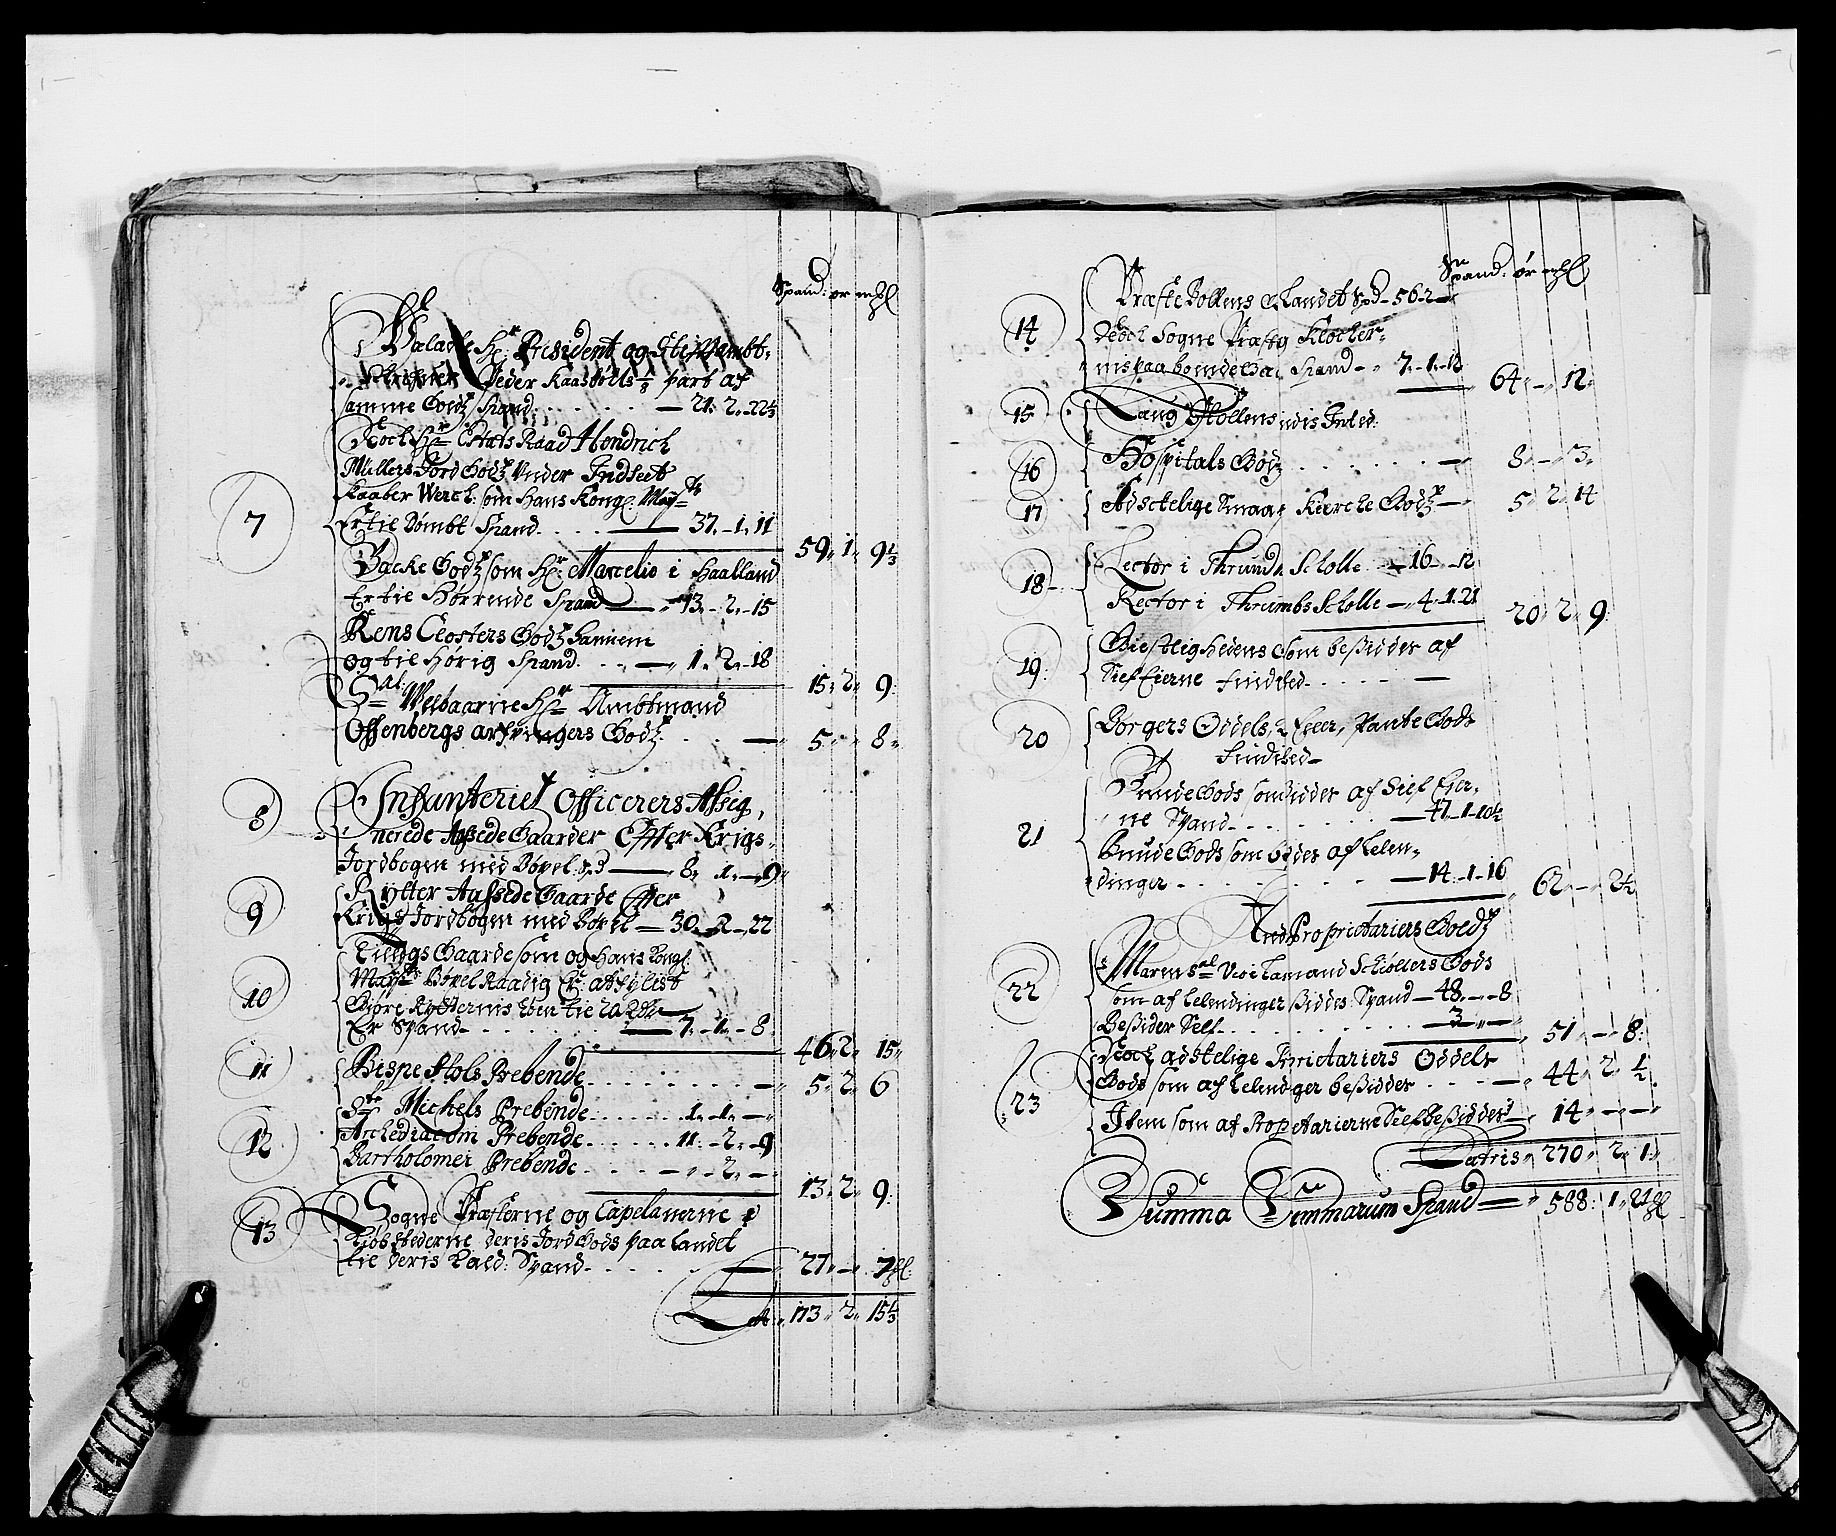 Spand: ør mḡl
Velacte Hr: President og Stifftambt-
Schrifver Peder Kaasbølls 1/3 part af
samme Godtz Spand. — 21. 2. 22 1/3
Noch Hr Etats Raad Hendrich
Müllers Jord Godtz Under Indseet
Kaaber Werch: som Hans Kongl: Mayts
Er til Dømbt Spand. — 37. 1. 11
59. 1. 9 1/3
7
Backe Godtz som Hr: Marcelio i Haalland
Er til Hørrende Spand — 13. 2. 15
Rens Closters Godtz Sammen
og til Hørig Spand. — 1. 2. 18
15. 2. 9.
Sal: Welbaarne Hr Ambtmand
Offenbergs arfvingers Godtz. — 5. 8.
8
Infanteriet Officerers Asseig,
nerede Aassede Gaarder Effter Krigs-
Jordbogen med Bøxel: Spd — 8. 1. 9.
9
Rytter Aassede Gaarde Effter
Krigs Jordbogen med Boxel — 30. 2. 22
10
Tillegs Gaarde som og Hans Kongl.
Mayts Bøxel Raadig Er: at
Gjøre Rytternis
Er Spand. — 7. 1. 8.
46. 2. 15.
11
Bispe Stols Prebende. — 5. 2. 6
12
Ste Michels Prebende. 1. 1. —
Archediaconi Prebende. 11. 2. 9
Bartholomei Prebende. — 2. —
13. 2. 9.
13
Sogne Præsterne og Capelanerne i
Kiøbstederne deris Jord Gods paa Landet
til deris Kald: Spand. — 27. — 7 gl.
Lat. 173. 2. 15 1/3
Spand: ør mḡl
14
Præste Bollens Landet Spd — 56. 2. —
Noch Sogne Præstg Klocker-
nis paaboende Spand — 7. 1. 12
64. — 12.
15
Laug Stollens indis Inted.
16
Hospitals Godz — 8. — 3.
17
Adschelige Smaa Kierche Godtz — 5. 2. 14
18
Lector i Thrundh Scholle. — 16. — 12
Rector i Thrumbs Scholle — 4. 1. 21
20. 2. 9.
19
Gieistlighedens som beßidder af
Self Eierne Findhed. —
20
Borgers Oddels, Pante Gods
Findhed —
21
Bunde Gods som sidder af Self Eier-
ne Spand. — 47. 1. 10 1/2
Bunde Gods som bødes af Lelen-
dinger. — 14. 1. 16
62. — 2 1/2
And: Proprietariers Godtz
22
Maren Sal Schiølters Gods
som af Lelendinger Bidder Spand — 48. — 8
Beßider Self. — 3. —
51. — 8.
23
Noch adskelige Prrietariers Oddels
Gods som af Lelendger beßidder — 44. 2. 1/2.
Item som af Propetarierne Self beßidder — 14. — —
Latris 270. 2. 1.
Summa Summarum Spand — 588. 1. 21 gl